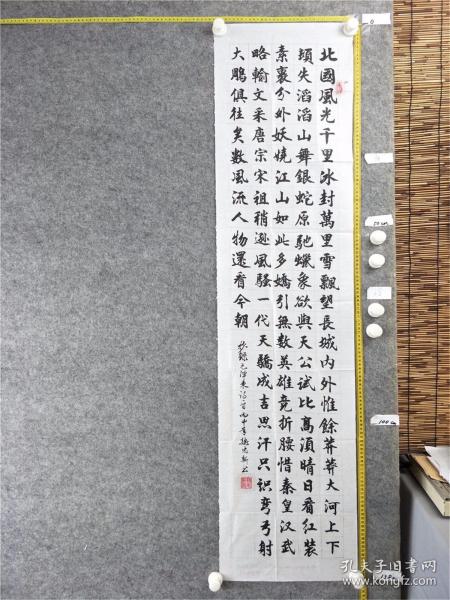 北國風光千里冰封萬里雪飄望長城内外惟餘莽莽大河上下
頓失滔滔山舞銀蛇原馳蠟象欲與天公試比高須晴日看红裝
素裹分外妖嬈江山如此多嬌引無數英雄竞折腰惜秦皇汉武
略輸文采唐宗宋祖稍遜風騷一代天驕成吉思汗只识彎弓射
大鵰俱往矣數風流人物還看今朝
丙申年
0
50cm
100cm
孔夫子旧书网
www.kongfz.com